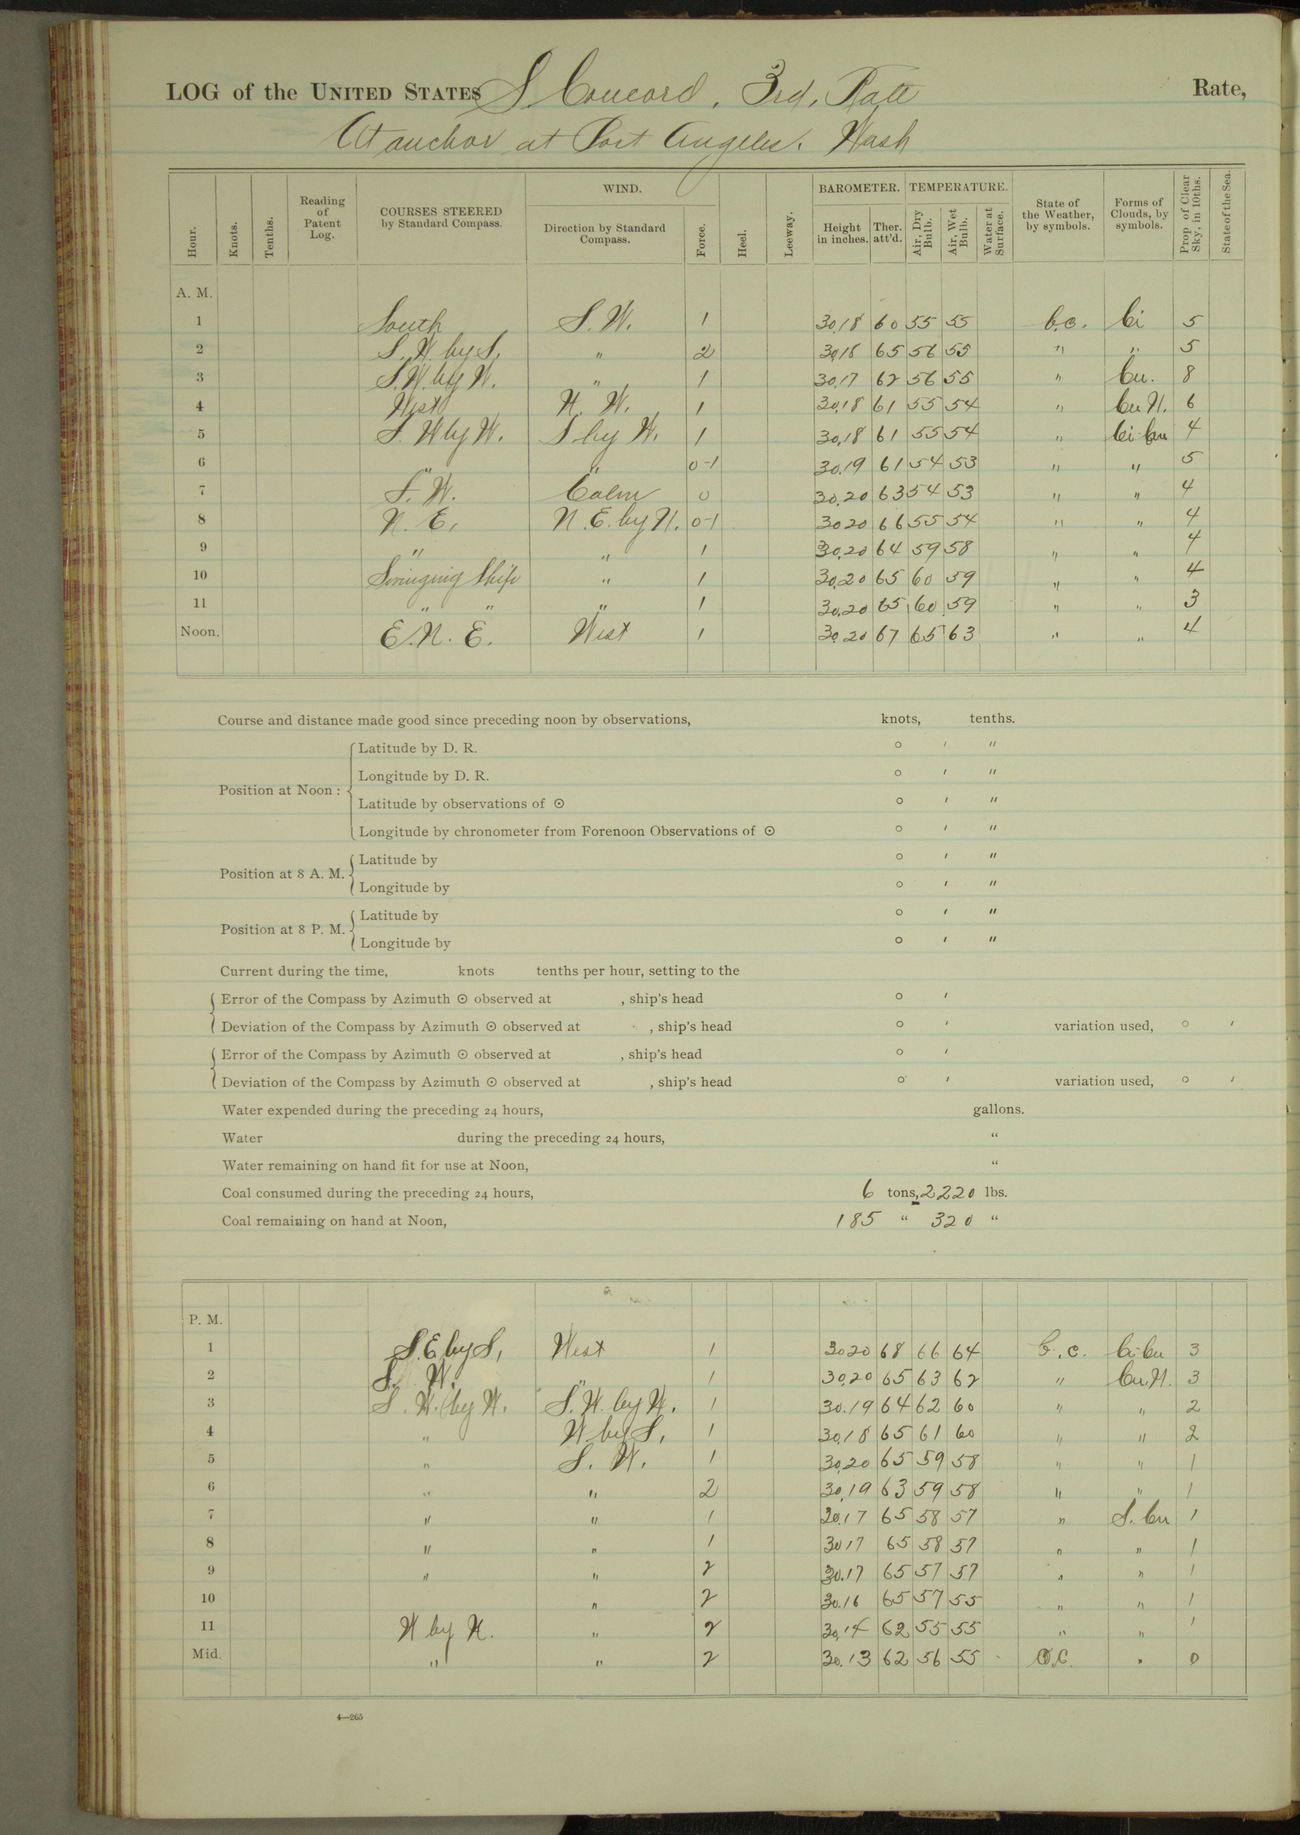 LOG of the UNITED STATES S. Concord, 3rd, Rate Rate,
At anchor at Port Angeles, Wash
Hour. Knots. Tenths. Reading of Patent Log. COURSES STEERED by Standard Compass. WIND. Direction by Standard Compass. Force. Heel. Leeway. BAROMETER. Height in inches. Ther. att'd. TEMPERATURE. Air, Dry Bulb. Air, Wet Bulb. Water at Surface. State of the Weather, by symbols. Forms of Clouds, by symbols. Prop. of Clear Sky, in 10ths. State of the Sea.
A. M.
1 South S. W. 1 30.18 60 55 55 b.c. Ci 5
2 S. W. by S. " 2 30.18 65 56 55 " " 5
3 S. W. by W. " 1 30.17 62 56 55 " Cu. 8
4 West N. W. 1 30.18 61 55 54 " Cu N. 6
5 S. W by W. S by W. 1 30.18 61 55 54 " Ci-Cu 4
6 " " 0-1 30.19 61 54 53 " " 5
7 S. W. Calm 0 30.20 63 54 53 " " 4
8 N. E. N. E. by N. 0-1 30 20 66 55 54 " " 4
9 " " 1 30.20 64 59 58 " " 4
10 Swinging Ship " 1 30.20 65 60 59 " " 4
11 " " " 1 30.20 65 60 59 " " 3
Noon. E. N. E. West 1 30.20 67 65 63 " " 4
Course and distance made good since preceding noon by observations, knots, tenths.
Position at Noon : Latitude by D. R. ° ′ ″
Longitude by D. R. ° ′ ″
Latitude by observations of ⊙ ° ′ ″
Longitude by chronometer from Forenoon Observations of ⊙ ° ′ ″
Position at 8 A. M. Latitude by ° ′ ″
Longitude by ° ′ ″
Position at 8 P. M. Latitude by ° ′ ″
Longitude by ° ′ ″
Current during the time, knots tenths per hour, setting to the
Error of the Compass by Azimuth ⊙ observed at , ship's head ° ′
Deviation of the Compass by Azimuth ⊙ observed at , ship's head ° ′ variation used, ° ′
Error of the Compass by Azimuth ⊙ observed at , ship's head ° ′
Deviation of the Compass by Azimuth ⊙ observed at , ship's head ° ′ variation used, ° ′
Water expended during the preceding 24 hours, gallons.
Water during the preceding 24 hours, "
Water remaining on hand fit for use at Noon, "
Coal consumed during the preceding 24 hours, 6 tons, 2220 lbs.
Coal remaining on hand at Noon, 185 " 320 "
P. M.
1 S. E. by S. West 1 30 20 68 66 64 b.c. Ci-Cu 3
2 S. W. " 1 30.20 65 63 62 " Cu. N. 3
3 S. W. by W. S. W. by W. 1 30.19 64 62 60 " " 2
4 " W by S. 1 30.18 65 61 60 " " 2
5 " S. W. 1 30.20 65 59 58 " " 1
6 " " 2 30.19 63 59 58 " " 1
7 " " 1 30.17 65 58 57 " S. Cu 1
8 " " 1 30 17 65 58 57 " " 1
9 " " 2 30.17 65 57 57 " " 1
10 " 2 30.16 65 57 55 " " 1
11 W by N. " 2 30.14 62 55 55 " " 1
Mid. " " 2 30.13 62 56 55 O.C. " 0
4—265